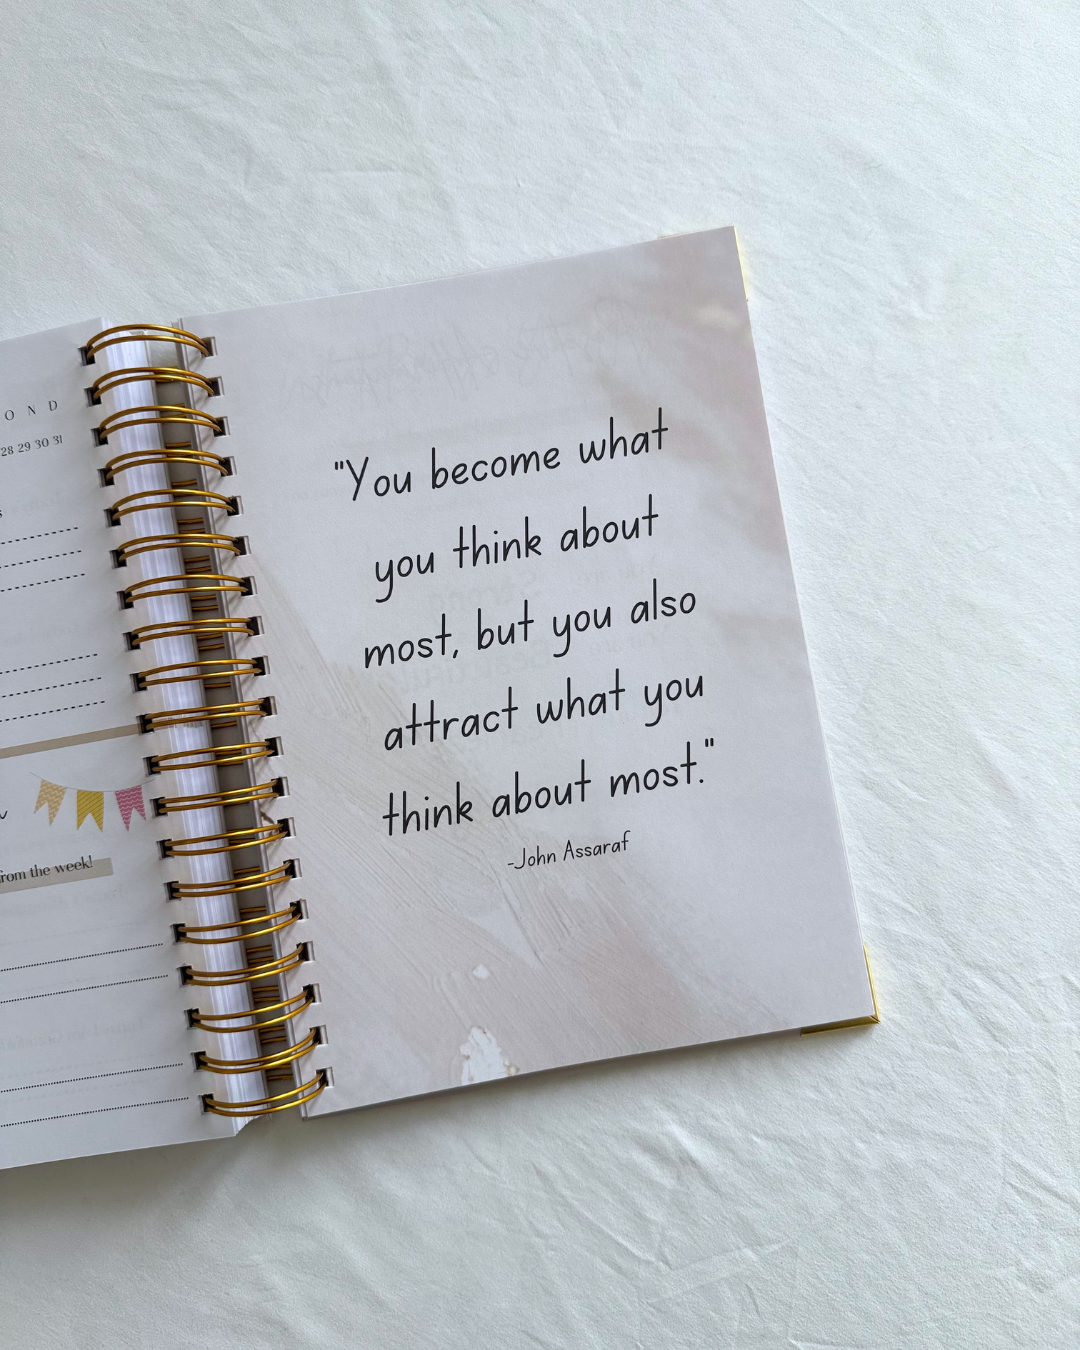 O N D
28 29 30 31
from the week!
"You become what
you think about
most, but you also
attract what you
think about most."
-John Assaraf